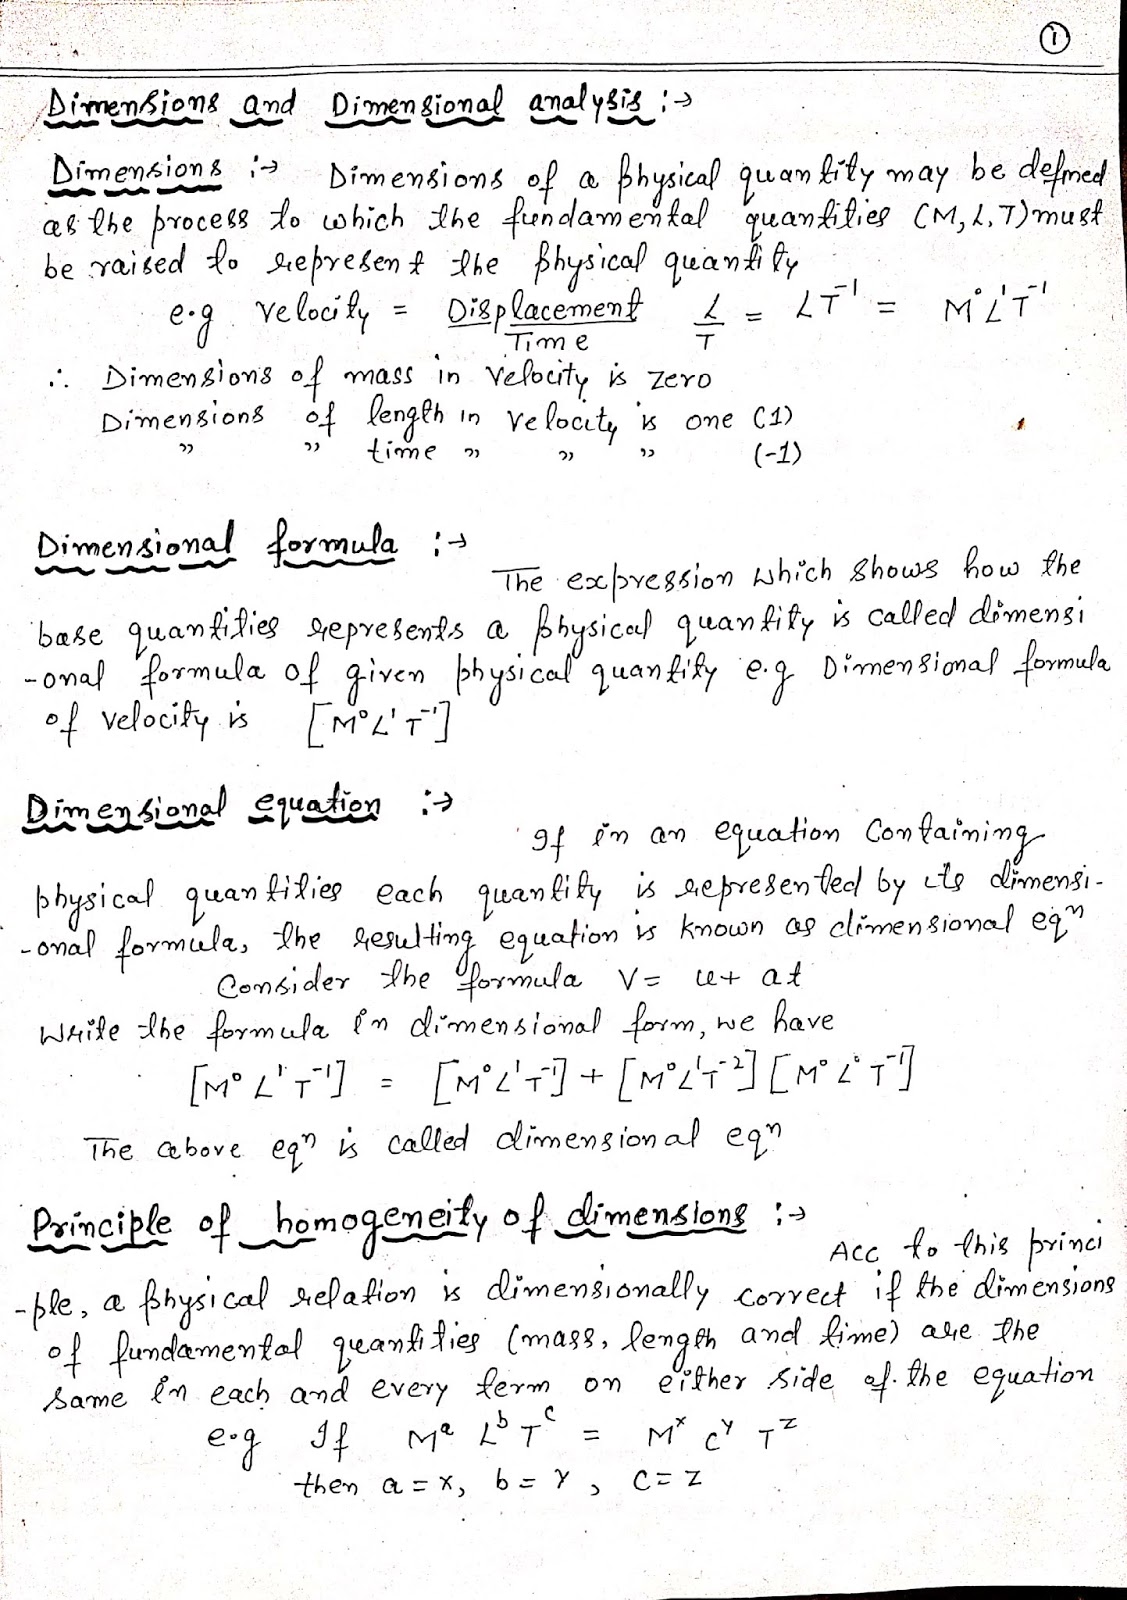 1
Dimensions and Dimensional analysis :→
Dimensions :→ Dimensions of a physical quantity may be defined
as the process to which the fundamental quantities (M, L, T) must
be raised to represent the physical quantity
e.g. velocity = Displacement/Time L/T = LT⁻¹ = M⁰L¹T⁻¹
∴ Dimensions of mass in velocity is zero
Dimensions of length in velocity is one (1)
" " time " " " (-1)
Dimensional formula :→
The expression which shows how the
base quantities represents a physical quantity is called dimensi
-onal formula of given physical quantity e.g Dimensional formula
of velocity is [M⁰L¹T⁻¹]
Dimensional equation :→
If in an equation containing
physical quantities each quantity is represented by its dimensi-
-onal formula, the resulting equation is known as dimensional eqⁿ
Consider the formula V = u + at
Write the formula in dimensional form, we have
[M⁰L¹T⁻¹] = [M⁰L¹T⁻¹] + [M⁰L¹T⁻²] [M⁰L⁰T⁻¹]
The above eqⁿ is called dimensional eqⁿ
Principle of homogeneity of dimensions :→
Acc to this princi
-ple, a physical relation is dimensionally correct if the dimensions
of fundamental quantities (mass, length and time) are the
same in each and every term on either side of the equation
e.g If Mᵃ Lᵇ Tᶜ = Mˣ Cʸ Tᶻ
then a = x, b = y, c = z